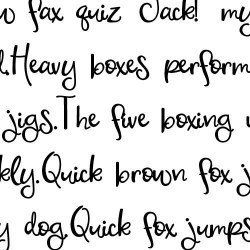 fax quiz Jack! my
Heavy boxes perform
jigs.The five boxing
kly.Quick brown fox j
y dog.Quick fox jumps